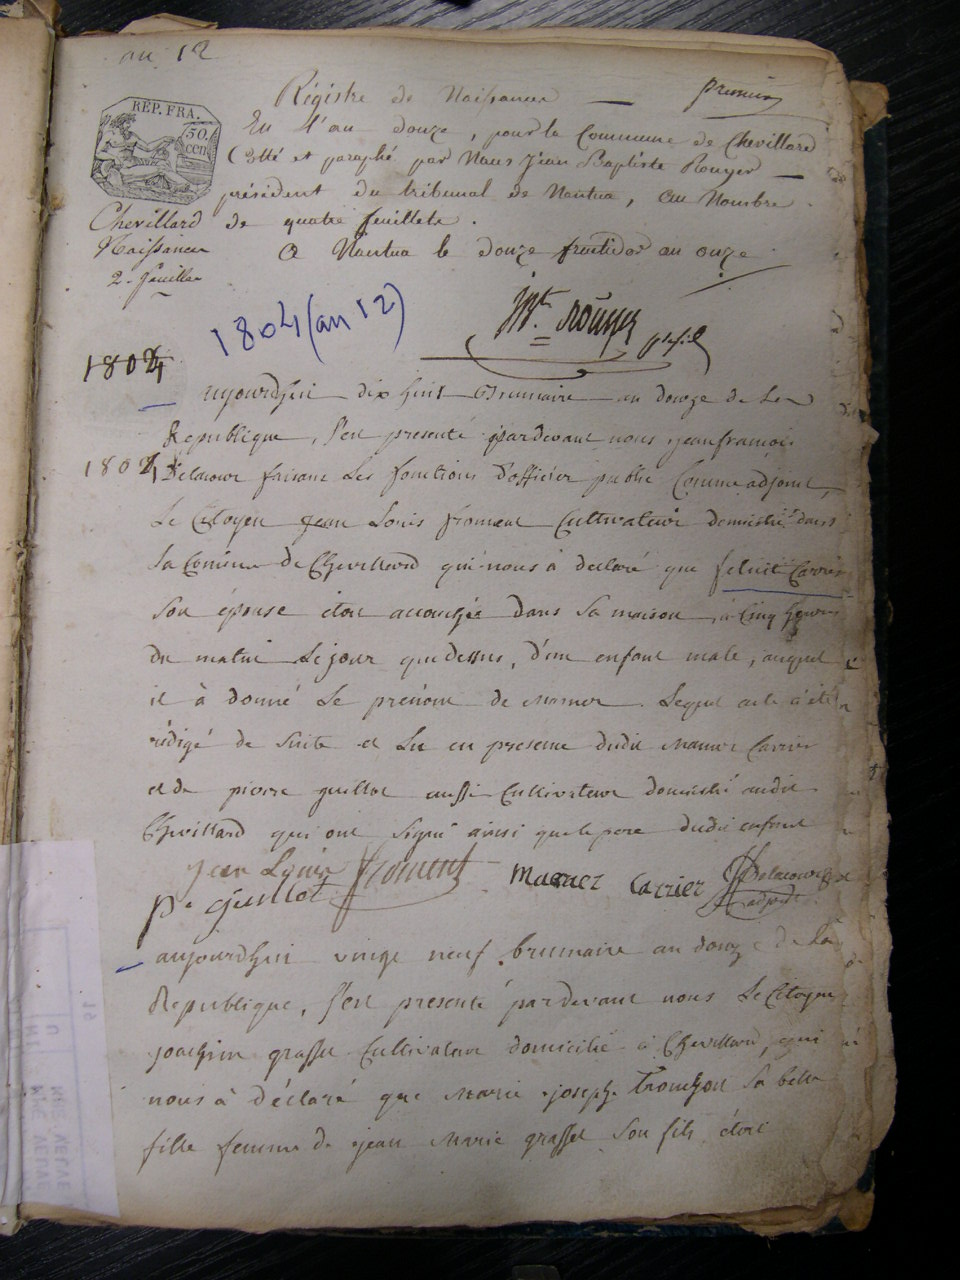 an 12
Régistre de Naissances premier
REP. FRA.
50. cen
En l'an douze, pour la Commune de Chevillard
Cotté et paraphé par Nous Jean Baptiste Rouyer
président du tribunal de Nantua, au Nombre
de quatre feuillets.
Chevillard
Naissances
2. feuilles
A Nantua le douze fructidor an onze
1804 (an 12)
Jn. Bt. Roüyer
1804
aujourdhui dix huit Brumaire an douze de La
Republique, s'est presenté pardevant nous jean francois
1804
Delacour faisant Les fonctions d'officier public Comme adjoint,
Le Citoyen Jean Louis froment Cultivateur domicilié dans
La Comune de Chevillard qui nous à declaré que felicité Carrier
son épouse étoit accouchée dans sa maison, à Cinq heures
du matin Le jour que dessus, d'un enfant male, auquel
il à donné Le prénom de mamer. Lequel acte à été
rédigé de suite et Lu en presence dudit Mamer Carrier
et de pierre guillot aussi Cultivateur domicilié audit
Chevillard qui ont signé ainsi que le pere dudit enfant
Jean Louis froment Mamer Carrier Delacour
pe. guillot adjoint
aujourdhui vingt neuf brumaire an douze de La
Republique, s'est presenté pardevant nous Le Citoyen
joachim grasset Cultivateur domicilié à Chevillard, qui
nous à déclaré que Marie joseph tronchon sa belle
fille femme de jean Marie grasset son fils étoit